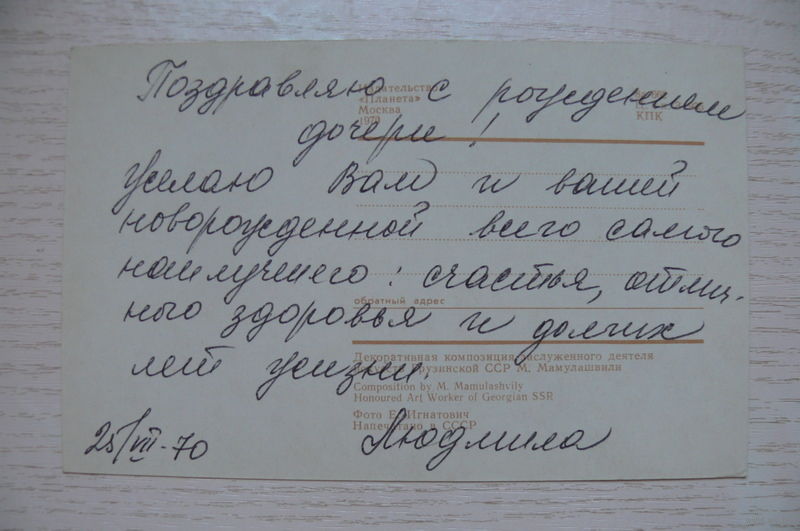 Поздравляю с рождением
дочери!
Желаю Вам и вашей
новорожденной всего самого
наилучшего: счастья, отлич-
ного здоровья и долгих
лет жизни.
25/VII-70
Людмила
Издательство
«Планета»
Москва
КПК
обратный адрес
Декоративная композиция заслуженного деятеля
искусств Грузинской ССР М. Мамулашвили
Composition by M. Mamulashvily
Honoured Art Worker of Georgian SSR
Фото Е. Игнатович
Напечатано в СССР